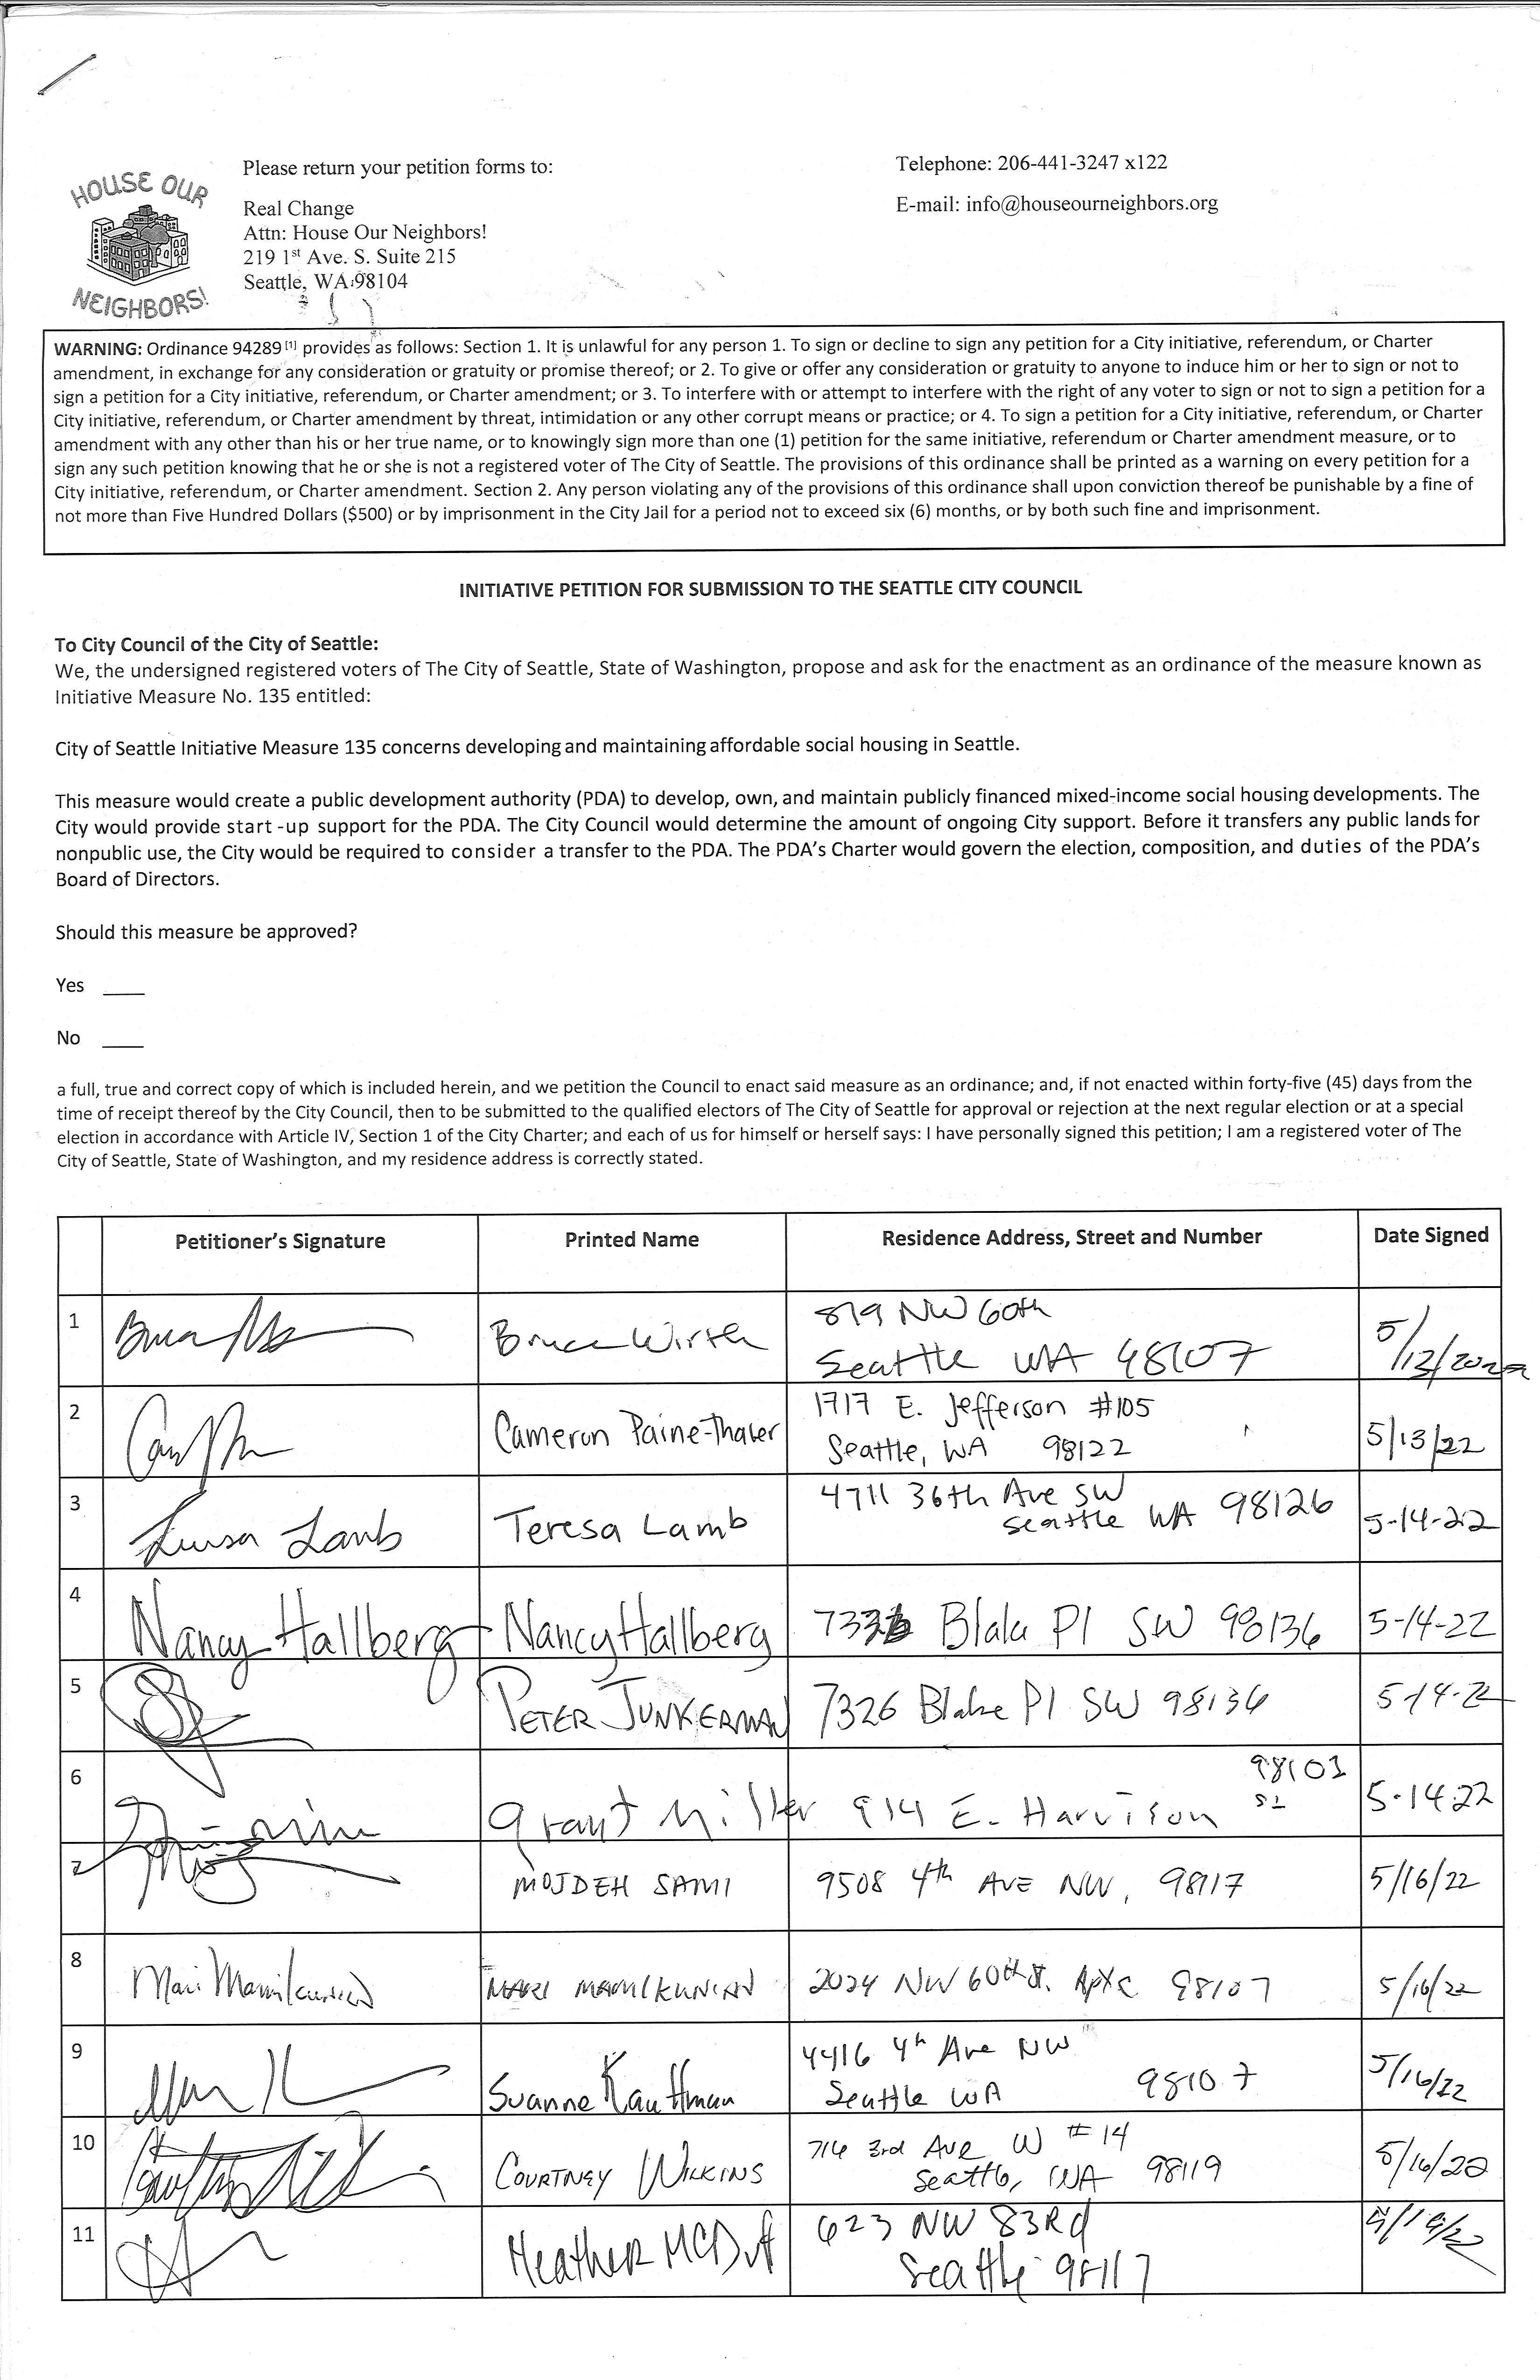 HOUSE OUR
NEIGHBORS!
Please return your petition forms to:
Real Change
Attn: House Our Neighbors!
219 1st Ave. S. Suite 215
Seattle, WA 98104
Telephone: 206-441-3247 x122
E-mail: info@houseourneighbors.org
WARNING: Ordinance 94289 [1] provides as follows: Section 1. It is unlawful for any person 1. To sign or decline to sign any petition for a City initiative, referendum, or Charter
amendment, in exchange for any consideration or gratuity or promise thereof; or 2. To give or offer any consideration or gratuity to anyone to induce him or her to sign or not to
sign a petition for a City initiative, referendum, or Charter amendment; or 3. To interfere with or attempt to interfere with the right of any voter to sign or not to sign a petition for a
City initiative, referendum, or Charter amendment by threat, intimidation or any other corrupt means or practice; or 4. To sign a petition for a City initiative, referendum, or Charter
amendment with any other than his or her true name, or to knowingly sign more than one (1) petition for the same initiative, referendum or Charter amendment measure, or to
sign any such petition knowing that he or she is not a registered voter of The City of Seattle. The provisions of this ordinance shall be printed as a warning on every petition for a
City initiative, referendum, or Charter amendment. Section 2. Any person violating any of the provisions of this ordinance shall upon conviction thereof be punishable by a fine of
not more than Five Hundred Dollars ($500) or by imprisonment in the City Jail for a period not to exceed six (6) months, or by both such fine and imprisonment.
INITIATIVE PETITION FOR SUBMISSION TO THE SEATTLE CITY COUNCIL
To City Council of the City of Seattle:
We, the undersigned registered voters of The City of Seattle, State of Washington, propose and ask for the enactment as an ordinance of the measure known as
Initiative Measure No. 135 entitled:
City of Seattle Initiative Measure 135 concerns developing and maintaining affordable social housing in Seattle.
This measure would create a public development authority (PDA) to develop, own, and maintain publicly financed mixed-income social housing developments. The
City would provide start -up support for the PDA. The City Council would determine the amount of ongoing City support. Before it transfers any public lands for
nonpublic use, the City would be required to consider a transfer to the PDA. The PDA's Charter would govern the election, composition, and duties of the PDA's
Board of Directors.
Should this measure be approved?
Yes ____
No ____
a full, true and correct copy of which is included herein, and we petition the Council to enact said measure as an ordinance; and, if not enacted within forty-five (45) days from the
time of receipt thereof by the City Council, then to be submitted to the qualified electors of The City of Seattle for approval or rejection at the next regular election or at a special
election in accordance with Article IV, Section 1 of the City Charter; and each of us for himself or herself says: I have personally signed this petition; I am a registered voter of The
City of Seattle, State of Washington, and my residence address is correctly stated.
Petitioner's Signature Printed Name Residence Address, Street and Number Date Signed
1 Bruce Wirth 819 NW 60th
Seattle WA 98107 5/12/2022
2 Cameron Paine-Thaler 1717 E. Jefferson #105
Seattle, WA 98122 5/13/22
3 Teresa Lamb Teresa Lamb 4711 36th Ave SW
Seattle WA 98126 5-14-22
4 Nancy Hallberg Nancy Hallberg Blake Pl SW 98136 5-14-22
5 PETER JUNKERMAN 7326 Blake Pl SW 98136 5-14-22
6 Grant Miller 914 E. Harrison 5-14-22
7 MOJDEH SAMI 9508 4th AVE NW, 98117 5/16/22
8 Mari Mamikunian MARI MAMIKUNIAN 2024 NW 60th St. Apt C 98107 5/16/22
9 Suanne Kauffman 4416 4th Ave NW
Seattle WA 98107 5/16/22
10 COURTNEY WILKINS 716 3rd Ave W #14
Seattle, WA 98119 5/16/22
11 Heather 623 NW 83Rd
Seattle 98117